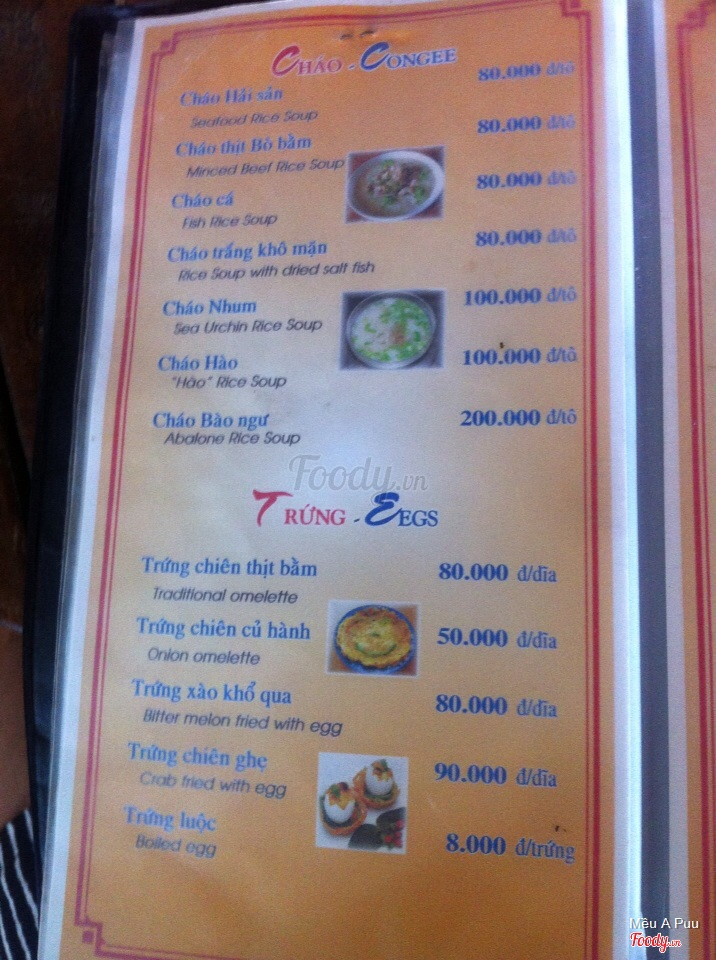 CHÁO - CONGEE
Cháo Hải sản 80.000 đ/tô
Seafood Rice Soup
Cháo thịt Bò bằm 80.000 đ/tô
Minced Beef Rice Soup
Cháo cá 80.000 đ/tô
Fish Rice Soup
Cháo trắng khô mặn 80.000 đ/tô
Rice Soup with dried salt fish
Cháo Nhum 100.000 đ/tô
Sea Urchin Rice Soup
Cháo Hào 100.000 đ/tô
"Hào" Rice Soup
Cháo Bào ngư 200.000 đ/tô
Abalone Rice Soup
Foody.vn
TRỨNG - EEGS
Trứng chiên thịt bằm 80.000 đ/dĩa
Traditional omelette
Trứng chiên củ hành 50.000 đ/dĩa
Onion omelette
Trứng xào khổ qua 80.000 đ/dĩa
Bitter melon fried with egg
Trứng chiên ghẹ 90.000 đ/dĩa
Crab fried with egg
Trứng luộc 8.000 đ/trứng
Boiled egg
Mều A Puu
Foody.vn